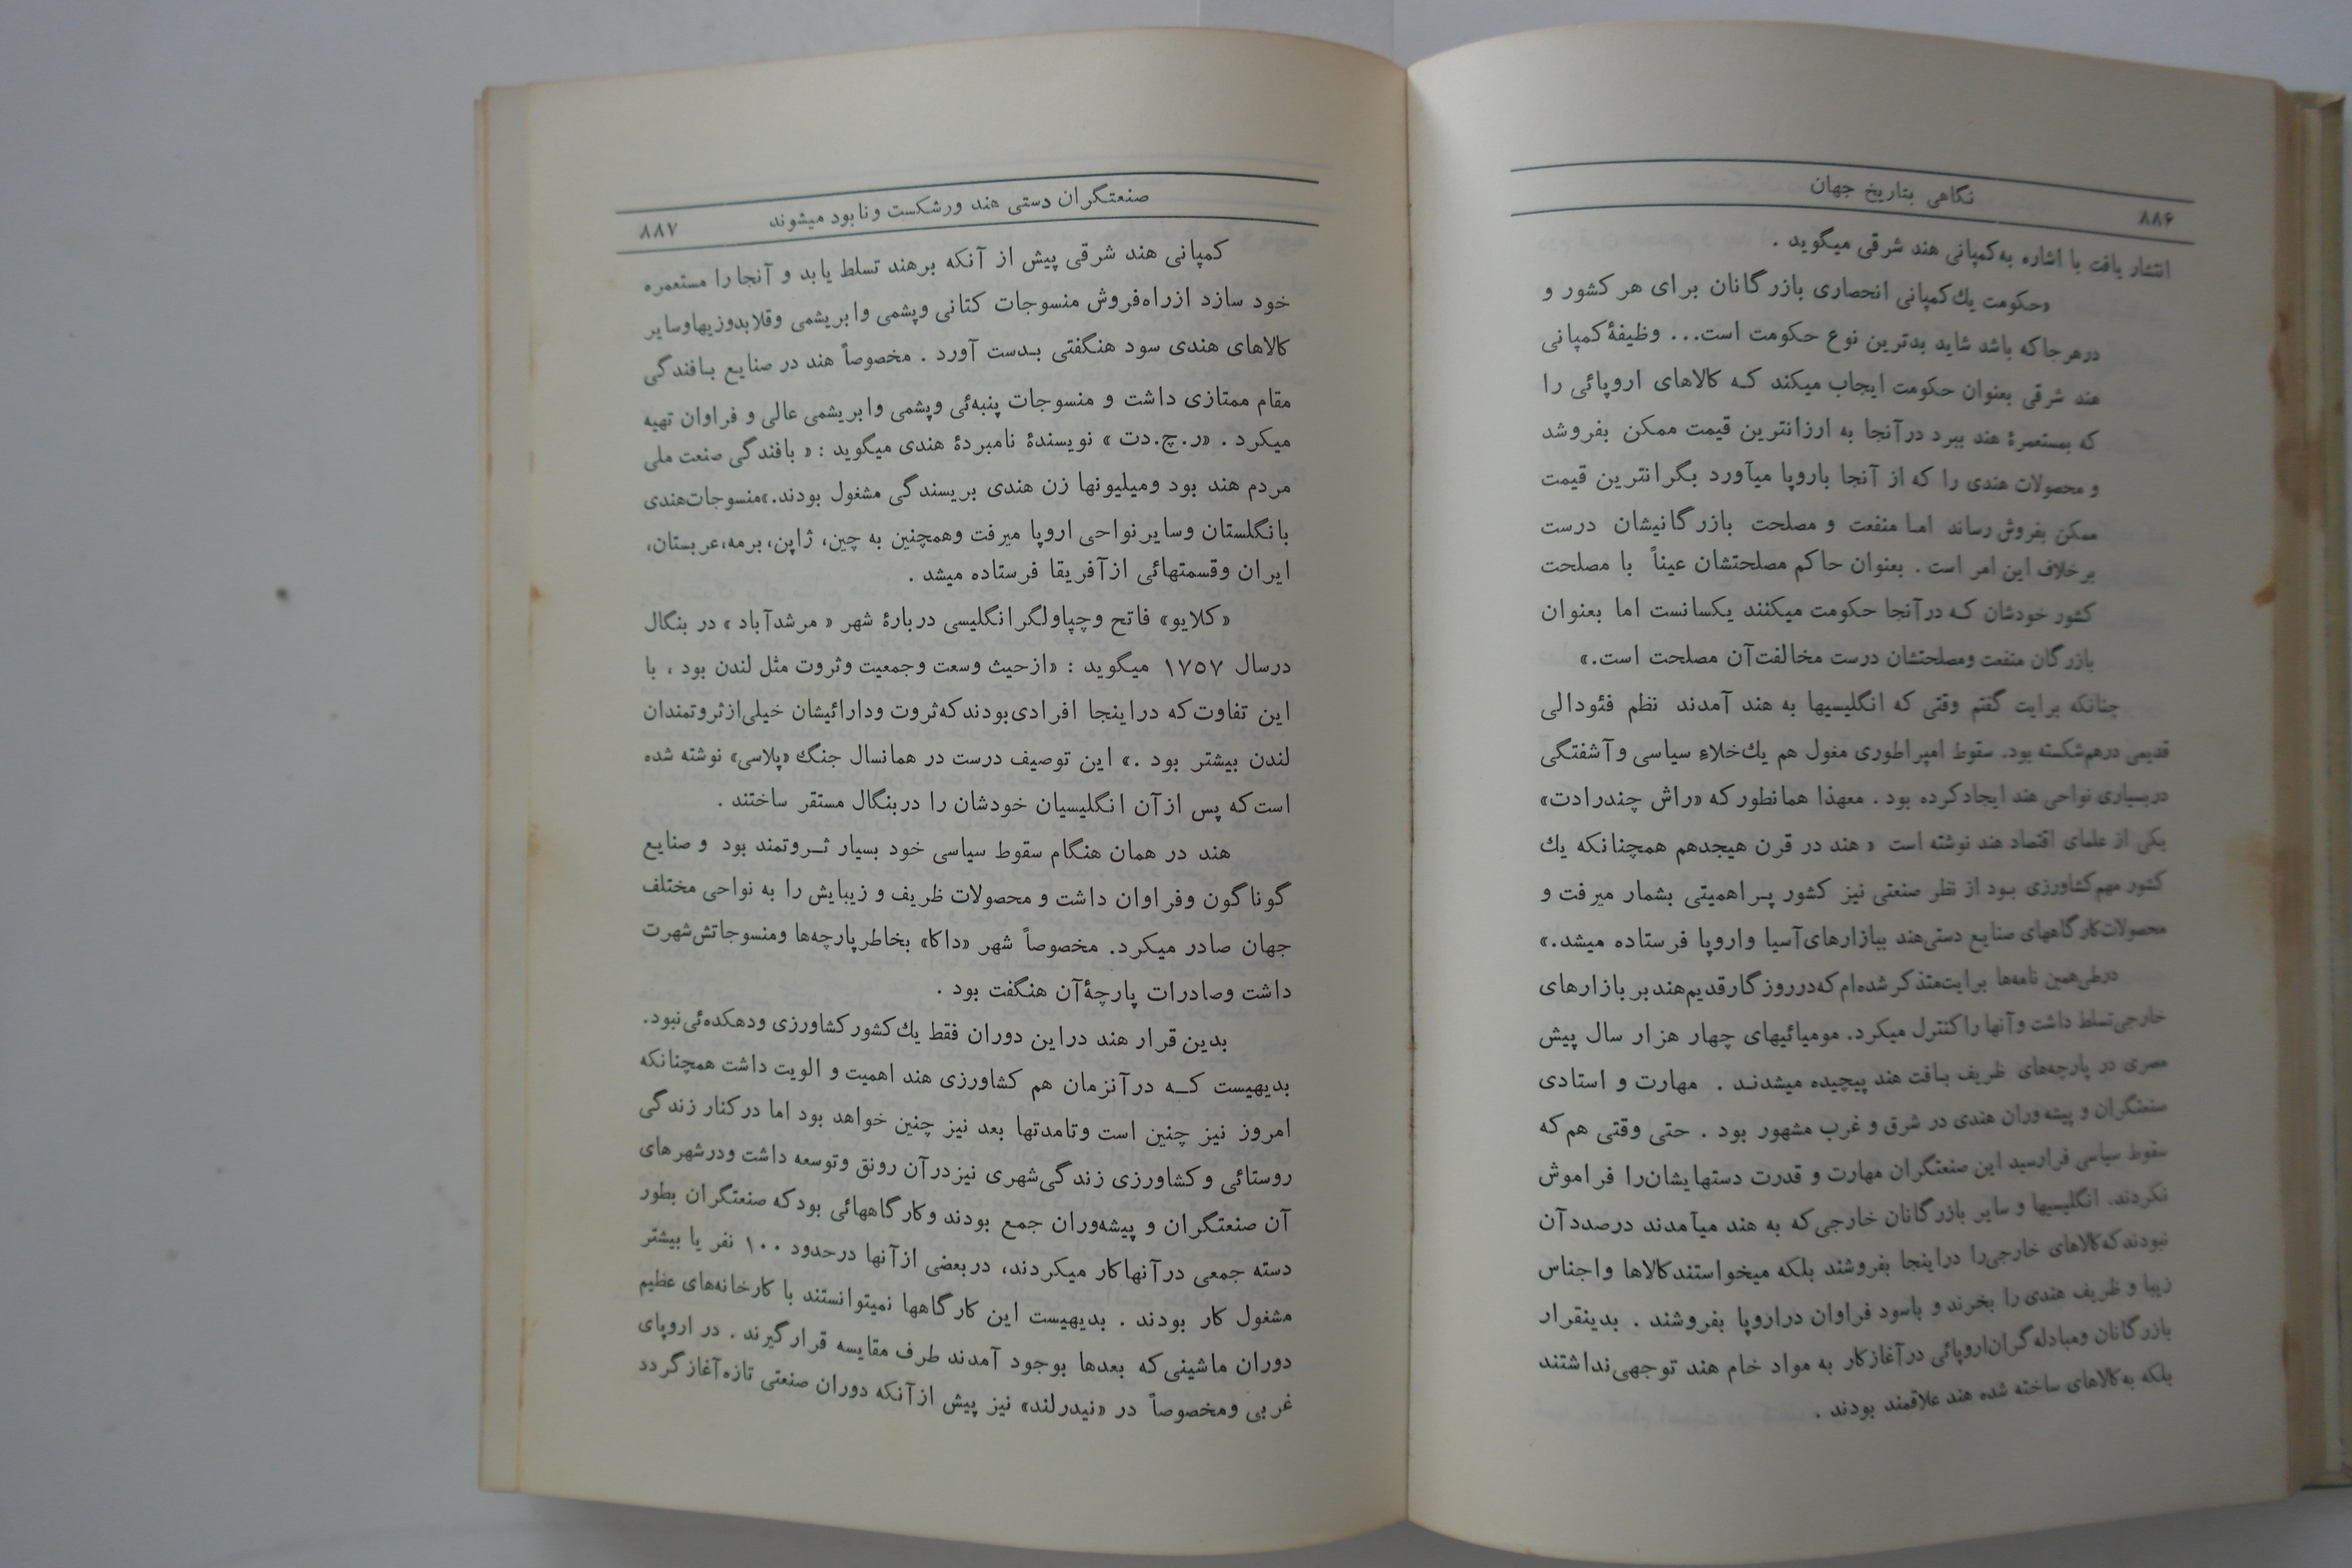 نگاهی بتاریخ جهان
۸۸۶
انتشار یافت با اشاره به کمپانی هند شرقی میگوید .
«حکومت یك کمپانی انحصاری بازرگانان برای هر کشور و
درهرجاکه باشد شاید بدترین نوع حکومت است... وظیفهٔ کمپانی
هند شرقی بعنوان حکومت ایجاب میکند کـه کالاهای اروپائی را
که بمستعمرهٔ هند ببرد درآنجا به ارزانترین قیمت ممکن بفروشد
و محصولات هندی را که از آنجا باروپا میآورد بگرانترین قیمت
ممکن بفروش رساند اما منفعت و مصلحت بازرگانیشان درست
برخلاف این امر است . بعنوان حاکم مصلحتشان عیناً با مصلحت
کشور خودشان کـه درآنجا حکومت میکنند یکسانست اما بعنوان
بازرگان منفعت ومصلحتشان درست مخالفت آن مصلحت است.»
چنانکه برایت گفتم وقتی که انگلیسیها به هند آمدند نظم فئودالی
قدیمی درهم شکسته بود. سقوط امپراطوری مغول هم یك خلاء سیاسی و آشفتگی
دربسیاری نواحی هند ایجاد کرده بود . معهذا همانطور که «راش چندرادت»
یکی از علمای اقتصاد هند نوشته است « هند در قرن هیجدهم همچنانکه یك
کشور مهم کشاورزی بـود از نظر صنعتی نیز کشور پـراهمیتی بشمار میرفت و
محصولات کارگاههای صنایع دستی هند ببازارهای آسیا واروپا فرستاده میشد.»
درطی همین نامه‌ها برایت متذکر شده‌ام که درروزگار قدیم هند بر بازارهای
خارجی تسلط داشت وآنها را کنترل میکرد. مومیائیهای چهار هزار سال پیش
مصری در پارچه‌های ظریف بـافت هند پیچیده میشدنـد . مهارت و استادی
صنعتگران و پیشه وران هندی در شرق و غرب مشهور بود . حتی وقتی هم که
سقوط سیاسی فرارسید این صنعتگران مهارت و قدرت دستهایشان را فراموش
نکردند. انگلیسیها و سایر بازرگانان خارجی که به هند میآمدند درصدد آن
نبودند که کالاهای خارجی را دراینجا بفروشند بلکه میخواستند کالاها و اجناس
زیبا و ظریف هندی را بخرند و باسود فراوان دراروپا بفروشند . بدینقرار
بازرگانان ومبادله گران اروپائی درآغاز کار به مواد خام هند توجهی نداشتند
بلکه به کالاهای ساخته شده هند علاقمند بودند .
صنعتگران دستی هند ورشکست ونابود میشوند
۸۸۷
کمپانی هند شرقی پیش از آنکه برهند تسلط یابد و آنجا را مستعمره
خود سازد ازراه فروش منسوجات کتانی وپشمی وابریشمی وقلابدوزیهاوسایر
کالاهای هندی سود هنگفتی بـدست آورد . مخصوصاً هند در صنایع بـافندگی
مقام ممتازی داشت و منسوجات پنبه‌ئی وپشمی وابریشمی عالی و فراوان تهیه
میکرد . «ر.چ.دت » نویسندهٔ نامبردهٔ هندی میگوید : « بافندگی صنعت ملی
مردم هند بود ومیلیونها زن هندی بریسندگی مشغول بودند.»منسوجات هندی
بانگلستان وسایر نواحی اروپا میرفت وهمچنین به چین، ژاپن، برمه، عربستان،
ایران وقسمتهائی ازآفریقا فرستاده میشد .
«کلایو» فاتح وچپاولگر انگلیسی دربارهٔ شهر « مرشدآباد » در بنگال
درسال ۱۷۵۷ میگوید : «ازحیث وسعت وجمعیت وثروت مثل لندن بود ، با
این تفاوت که دراینجا افرادی بودند که ثروت ودارائیشان خیلی از ثروتمندان
لندن بیشتر بود .» این توصیف درست در همانسال جنگ «پلاسی» نوشته شده
است که پس ازآن انگلیسیان خودشان را دربنگال مستقر ساختند .
هند در همان هنگام سقوط سیاسی خود بسیار ثـروتمند بود و صنایع
گوناگون وفراوان داشت و محصولات ظریف و زیبایش را به نواحی مختلف
جهان صادر میکرد. مخصوصاً شهر «داکا» بخاطر پارچه‌ها ومنسوجاتش شهرت
داشت وصادرات پارچهٔ آن هنگفت بود .
بدین قرار هند دراین دوران فقط یك کشور کشاورزی ودهکده‌ئی نبود.
بدیهیست کـه درآنزمان هم کشاورزی هند اهمیت و الویت داشت همچنانکه
امروز نیز چنین است وتامدتها بعد نیز چنین خواهد بود اما درکنار زندگی
روستائی و کشاورزی زندگی شهری نیز درآن رونق وتوسعه داشت ودرشهرهای
آن صنعتگران و پیشه‌وران جمع بودند وکارگاههائی بودکه صنعتگران بطور
دسته جمعی درآنهاکار میکردند، دربعضی ازآنها درحدود ۱۰۰ نفر یا بیشتر
مشغول کار بودند . بدیهیست این کارگاهها نمیتوانستند با کارخانه‌های عظیم
دوران ماشینی که بعدها بوجود آمدند طرف مقایسه قرار گیرند . در اروپای
غربی ومخصوصاً در «نیدرلند» نیز پیش ازآنکه دوران صنعتی تازه آغاز گردد